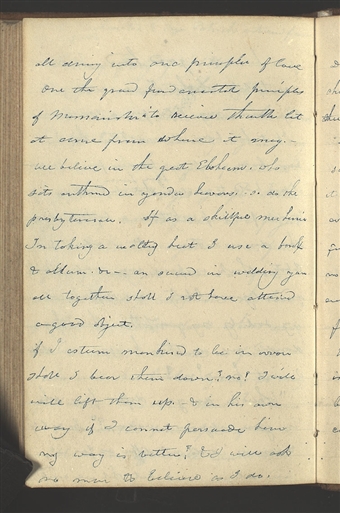 all drawing into one principle of love
one the grand fundamental principles
of Mormonism is to receive thruth let
it come from where it may.-
we believe in the great Eloheem. who
sits enthroned in yonder heavens. so do the
presbyterians. If as a skillful mechanic
In taking a welding heat I use a borax
& allum. &c- an succeed in welding you
all together shall I not have attained
a good object.
if I esteem mankind to be in error
shall I bear them down? no! I will
will lift them up. & in his own
way if I cannot persuade him
my way is better! & I will ask
no man to believe as I do.